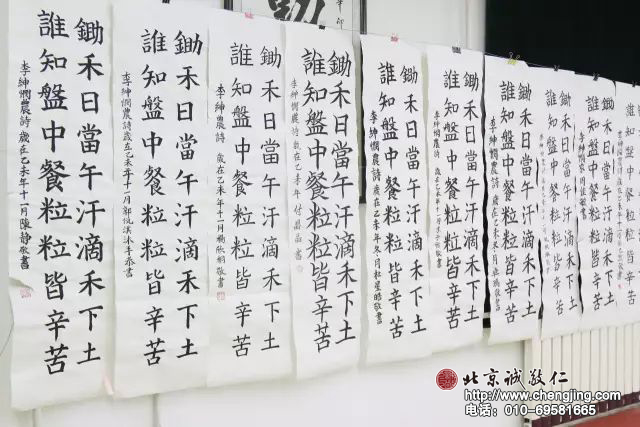 鋤禾日當午汗滴禾下土
誰知盤中餐粒粒皆辛苦
李紳憫農詩 歲在乙未年十一月陳靜敬書
鋤禾日當午汗滴禾下土
誰知盤中餐粒粒皆辛苦
李紳憫農詩歲在乙未年十一月郭沐手恭書
鋤禾日當午汗滴禾下土
誰知盤中餐粒粒皆辛苦
李紳憫農詩 歲在乙未年十一月楊敬書
鋤禾日當午汗滴禾下土
誰知盤中餐粒粒皆辛苦
李紳憫農詩 歲在乙未年 付書
鋤禾日當午汗滴禾下土
誰知盤中餐粒粒皆辛苦
李紳憫農詩 歲在乙未年冬月杜星皓敬書
鋤禾日當午汗滴禾下土
誰知盤中餐粒粒皆辛苦
李紳憫農詩 歲在乙未年
鋤禾日當午汗滴禾下土
誰知盤中餐粒粒皆辛苦
李紳憫農詩 歲在乙未年冬月敬書
鋤禾日當午汗滴禾下土
誰知盤中餐粒粒皆辛苦
鋤禾日當午汗滴禾下土
誰知盤中餐粒粒皆辛苦
誰知盤中餐粒粒皆辛苦
北京诚敬仁
http://www.chengjing.com
电话：010-69581665